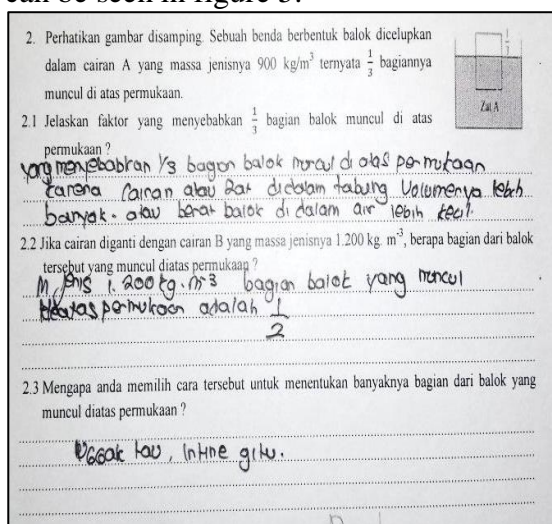 2. Perhatikan gambar disamping. Sebuah benda berbentuk balok dicelupkan
dalam cairan A yang massa jenisnya 900 kg/m³ ternyata 1/3 bagiannya
muncul di atas permukaan.
1/3
Zat A
2.1 Jelaskan faktor yang menyebabkan 1/3 bagian balok muncul di atas
permukaan ?
yang menyebabkan 1/3 bagian balok muncul di atas permukaan
karena cairan atau zat didalam tabung Volumenya lebih
banyak. atau berat balok di dalam air lebih kecil.
2.2 Jika cairan diganti dengan cairan B yang massa jenisnya 1.200 kg. m⁻³, berapa bagian dari balok
tersebut yang muncul diatas permukaan ?
M jenis 1.200 kg.m-3 bagian balok yang muncul
diatas permukaan adalah 1/2
2.3 Mengapa anda memilih cara tersebut untuk menentukan banyaknya bagian dari balok yang
muncul diatas permukaan ?
Nggak tau, intine gitu.